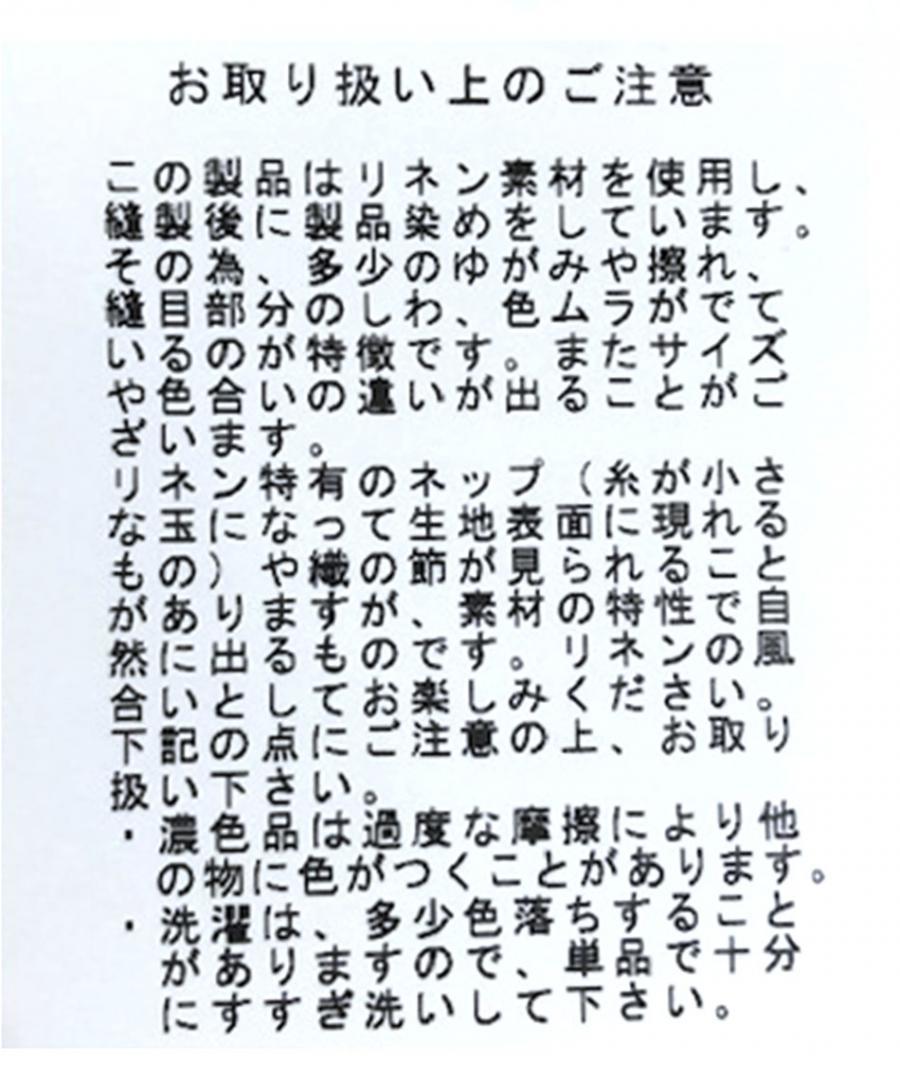 お取り扱い上のご注意
この製品はリネン素材を使用し、
縫製後に製品染めをしています。
その為、多少のゆがみや擦れ、
縫目部分のしわ、色ムラがでて
いるのが特徴です。またサイズ
や色合いの違いが出ることがご
ざいます。
リネン特有のネップ（糸が小さ
な玉になって生地表面に現れる
もの）や織の節が見られること
がありますが、素材の特性で自
然に出るものです。リネンの風
合いとしてお楽しみください。
下記の点にご注意の上、お取り
扱い下さい。
・濃色品は過度な摩擦により他
の物に色がつくことがあります。
・洗濯は、多少色落ちすること
がありますので、単品で十分
にすすぎ洗いして下さい。